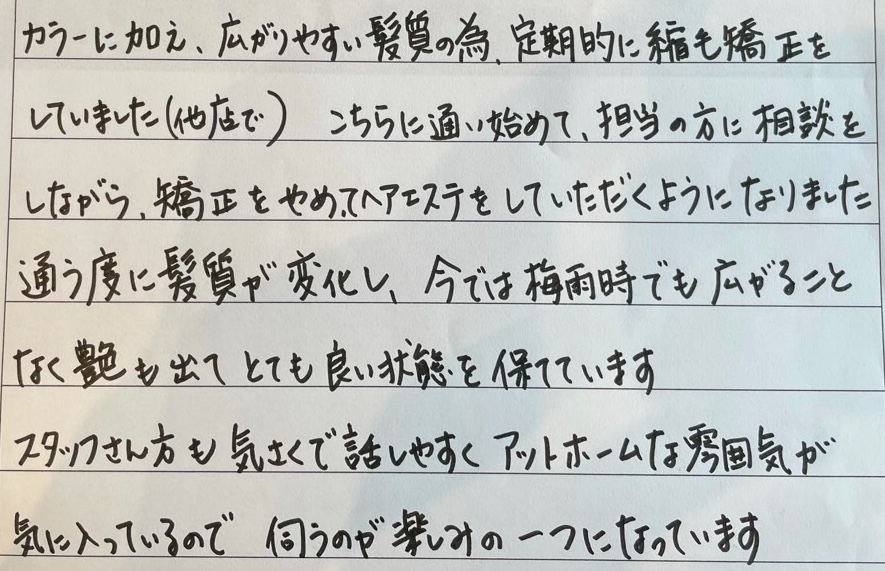 カラーに加え、広がりやすい髪質の為、定期的に縮毛矯正を
していました(他店で) こちらに通い始めて、担当の方に相談を
しながら、矯正をやめてヘアエステをしていただくようになりました
通う度に髪質が変化し、今では梅雨時でも広がること
なく艶も出てとても良い状態を保てています
スタッフさん方も気さくで話しやすくアットホームな雰囲気が
気に入っているので 伺うのが楽しみの一つになっています